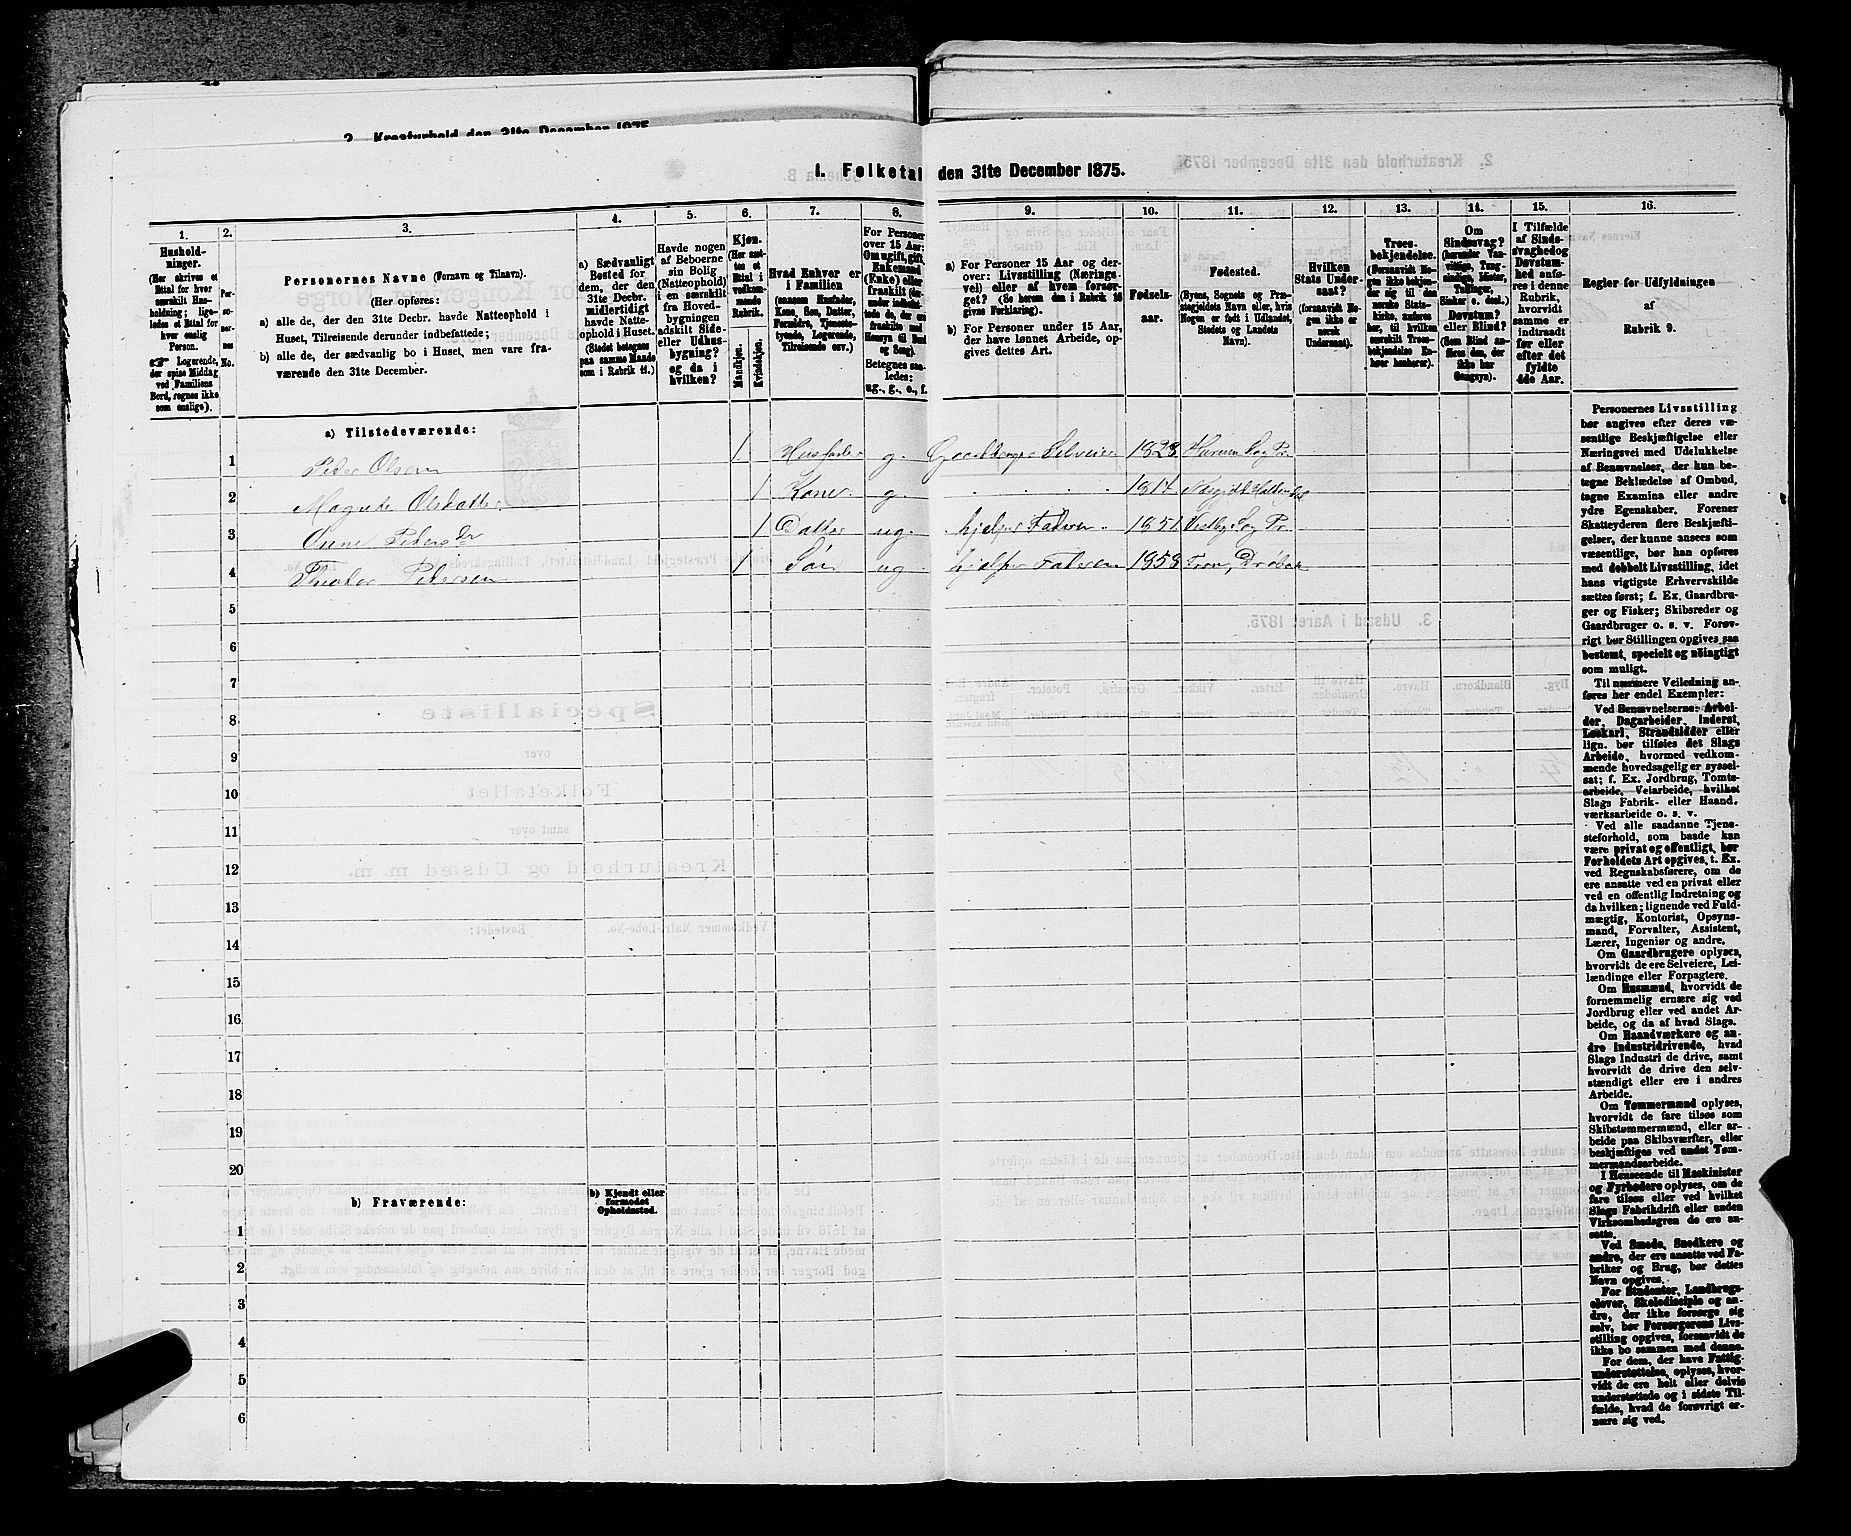 2. Kreaturhold den 31te December 1875.
1. Folketal den 31te December 1875.
1. 2. 3. 4. 5. 6. 7. 8. 9. 10. 11. 12. 13. 14. 15. 16.
Hushold-
ninger.
(Her skrives et
Ettal for hver
særskilt Hus-
holdning; lige-
ledes et Ettal for
hver enslig
Person.
☞ Logerende,
der spise Middag
ved Familiens
Bord, regnes ikke
som enslige).
Per-
so-
ner-
nes
No.
Personernes Navne (Fornavn og Tilnavn).
(Her opføres:
a) alle de, der den 31te Decbr. havde Natteophold i
Huset, Tilreisende derunder indbefattede;
b) alle de, der sædvanlig bo i Huset, men vare fra-
værende den 31te December.
a) Sædvanligt
Bosted for
dem, der den
31te Decbr.
midlertidigt
havde Natte-
ophold i Huset.
(Stedet betegnes
paa samme Maade
som i Rubrik 11.)
Havde nogen
af Beboerne
sin Bolig
(Natteophold)
i en særskilt
fra Hoved-
bygningen
adskilt Side-
eller Udhus-
bygning?
og da i
hvilken?
Kjøn.
(Her sæt-
tes et
Ettal i
vedkom-
mende
Rubrik.
Mandkjøn.
Kvindekjøn.
Hvad Enhver er
i Familien
(saasom Husfader,
Kone, Søn, Datter,
Forældre, Tjeneste-
tyende, Logerende,
Tilreisende osv.)
For Personer
over 15 Aar:
Om ugift, gift,
Enkemand
(Enke) eller
fraskilt (der-
under indbefat-
tede de, der ere
fraskilte med
Hensyn til Bord
og Seng).
Betegnes saa-
ledes:
ug., g., e., f.
a) For Personer 15 Aar og der-
over: Livsstilling (Nærings-
vei) eller af hvem forsør-
get? (Se herom den i Rubrik 16
givne Forklaring).
b) For Personer under 15 Aar,
der have lønnet Arbeide, op-
gives dettes Art.
Fødsels-
aar.
Fødested.
(Byens, Sognets og Præ-
stegjeldets Navn eller, hvis
Nogen er født i Udlandet,
Stedets og Landets
Navn).
Hvilken
Stats Under-
saat?
(forsaavidt No-
gen ikke er
norsk
Undersaat).
Troes-
bekjendelse.
(Forsaavidt No-
gen ikke bekjen-
der sig til den
norske Stats-
kirke, anføres
her, til hvilken
særskilt Troes-
bekjendelse En-
hver henhører).
Om
Sindssvag?
(herunder Van-
vittige, Tung-
sindige, Idioter,
Tullinger,
Sinker o. desl.)
Døvstum?
eller Blind?
(Som Blind an-
føres den, der
ikke har
Gangsyn).
I Tilfælde
af Sinds-
svaghed og
Døvstum-
hed anfø-
res i denne
Rubrik,
hvorvidt
samme er
indtraadt
før eller
efter det
fyldte
4de Aar.
Regler for Udfyldningen
af
Rubrik 9.
a) Tilstedeværende:
1 Peder Olsen 1 Husfader g. Gaardbruger Selveier 1828 Hurum Sog Pr.
2 Magrete Olsdatter 1 Kone g. 1817
3 Anne Pedersdr 1 Datter ug. hjelper Faderen 1851 Vestby Sog Pr.
4 Theodor Pedersen 1 Søn ug hjelper Faderen 1858 Fron, Drøbak
5
6
7
8
9
10
11
12
13
14
15
16
17
18
19
20
b) Fraværende:
b) Kjendt eller
formodet
Opholdssted.
1
2
3
4
5
6
Personernes Livsstilling
bør angives efter deres væ-
sentlige Beskjæftigelse eller
Næringsvei med Udelukkelse
af Benævnelser, der kun be-
tegne Beklædelse af Ombud,
tagne Examina eller andre
ydre Egenskaber. Forener
Skatteyderen flere Beskjæfti-
gelser, der kunne ansees som
væsentlige, bør han opføres
med dobbelt Livsstilling, idet
hans vigtigste Erhvervskilde
sættes først; f. Ex. Gaardbru-
ger og Fisker; Skibsreder og
Gaardbruger o. s. v. Forøv-
rigt bør Stillingen opgives saa
bestemt, specielt og nöiagtigt
som muligt.
Til nærmere Veiledning an-
føres her endel Exempler:
Ved Benævnelserne: Arbei-
der, Dagarbeider, Inderst,
Løskarl, Strandsidder eller
lign. bør tilføies det Slags
Arbeide, hvormed vedkom-
mende hovedsagelig er syssel-
sat; f. Ex. Jordbrug, Tomte-
arbeide, Veiarbeide, hvilket
Slags Fabrik- eller Haand-
værksarbeide o. s. v.
Ved alle saadanne Tjene-
steforhold, som baade kan
være privat og offentligt, bør
Forholdets Art opgives, t. Ex.
ved Regnskabsførere, om de
ere ansatte ved en privat eller
ved en offentlig Indretning og
da hvilken; lignende ved Fuld-
mægtig, Kontorist, Opsyns-
mand, Forvalter, Assistent,
Lærer, Ingeniør og andre.
Om Gaardbrugere oplyses,
hvorvidt de ere Selveiere, Lei-
lændinge eller Forpagtere.
Om Husmænd, hvorvidt de
fornemmelig ernære sig ved
Jordbrug eller ved andet Ar-
beide, og da af hvad Slags.
Om Haandværkere og an-
dre Industridrivende, hvad
Slags Industri de drive, samt
hvorvidt de drive den selv-
stændigt eller ere i andres
Arbeide.
Om Tømmermænd oplyses,
hvorvidt de fare tilsøs som
Skibstømmermænd, eller ar-
beide paa Skibsværfter, eller
beskjæftiges ved andet Tøm-
mermandsarbeide.
I Henseende til Maskinister
og Fyrbødere oplyses, om de
fare tilsøs eller ved hvilket
Slags Fabrikdrift eller anden
Virksomhedsgren de ere an-
satte.
Ved Smede, Snedkere og
andre, der ere ansatte ved Fa-
briker og Brug, bør dettes
Navn opgives.
For Studenter, Landbrugs-
elever, Skoledisciple og an-
dre, der ikke forsørge sig
selv, bør Forsørgerens Livs-
stilling opgives, forsaavidt de
ikke bo sammen med denne.
For dem, der have Fattig-
understøttelse, oplyses, hvor-
vidt de ere helt eller delvis
understøttede og i sidste Til-
fælde, hvad de forøvrigt er-
nære sig ved.